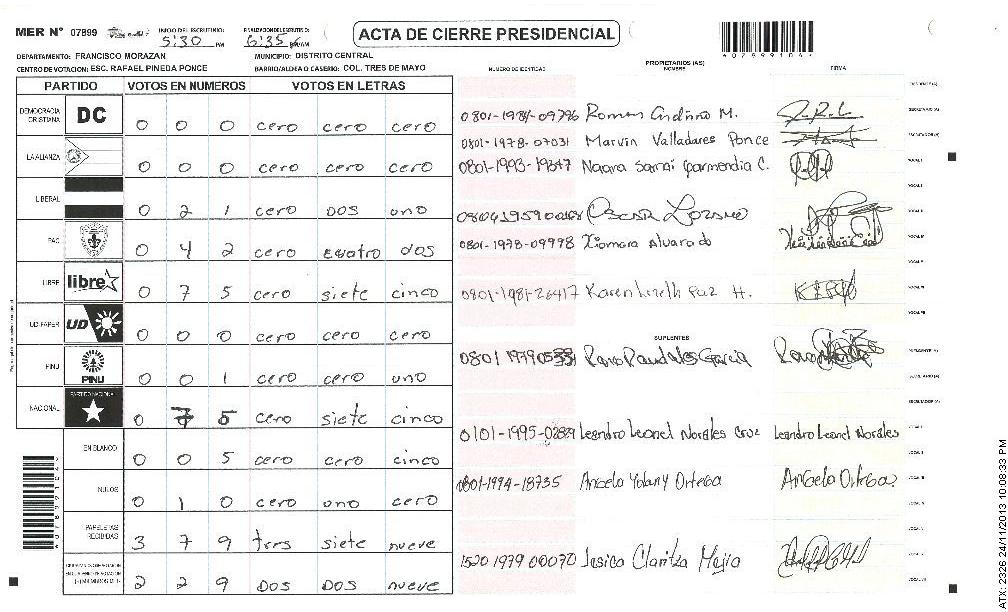 MER N° 07899 INICIO DEL ESCRUTINIO: 5:30 PM FINALIZACION DEL ESCRUTINIO: 6:35 PM/AM
ACTA DE CIERRE PRESIDENCIAL
4078991044
DEPARTAMENTO: FRANCISCO MORAZAN MUNICIPIO: DISTRITO CENTRAL
CENTRO DE VOTACION: ESC. RAFAEL PINEDA PONCE BARRIO/ALDEA O CASERIO: COL. TRES DE MAYO
NUMERO DE IDENTIDAD PROPIETARIOS (AS) NOMBRE FIRMA
PARTIDO VOTOS EN NUMEROS VOTOS EN LETRAS
DEMOCRACIA CRISTIANA DC 0 0 0 cero cero cero
LA ALIANZA 0 0 0 cero cero cero
LIBERAL 0 2 1 cero DOS uno
PAC 0 4 2 cero cuatro dos
LIBRE libre 0 7 5 cero siete cinco
UD-FAPER UD 0 0 0 cero cero cero
PINU PINU 0 0 1 cero cero uno
NACIONAL PARTIDO NACIONAL 0 7 5 cero siete cinco
EN BLANCO 0 0 5 cero cero cinco
NULOS 0 1 0 cero uno cero
PAPELETAS RECIBIDAS 3 7 9 tres siete nueve
2 2 9 DOS DOS nueve
0801-1984-09796 Roman M.
0801-1978-07031 Marvin Valladares Ponce
0801-1993-19847 Naara Sarai Garmendia C.
Oscar Lozano
0801-1978-09998 Xiomara Alvarado
0801-1981-26417 Karen Lizeth Paz H.
SUPLENTES
0801 1979 Garcia
0101-1995-02829 Leandro Leonel Norales Cruz Leandro Leonel Norales
0801-1994-18735 Angela Yolany Ortega Angela Ortega
1520 1979 00070 Jesica Claritza Mejia
ATX: 2326 24/11/2013 10:08:33 PM